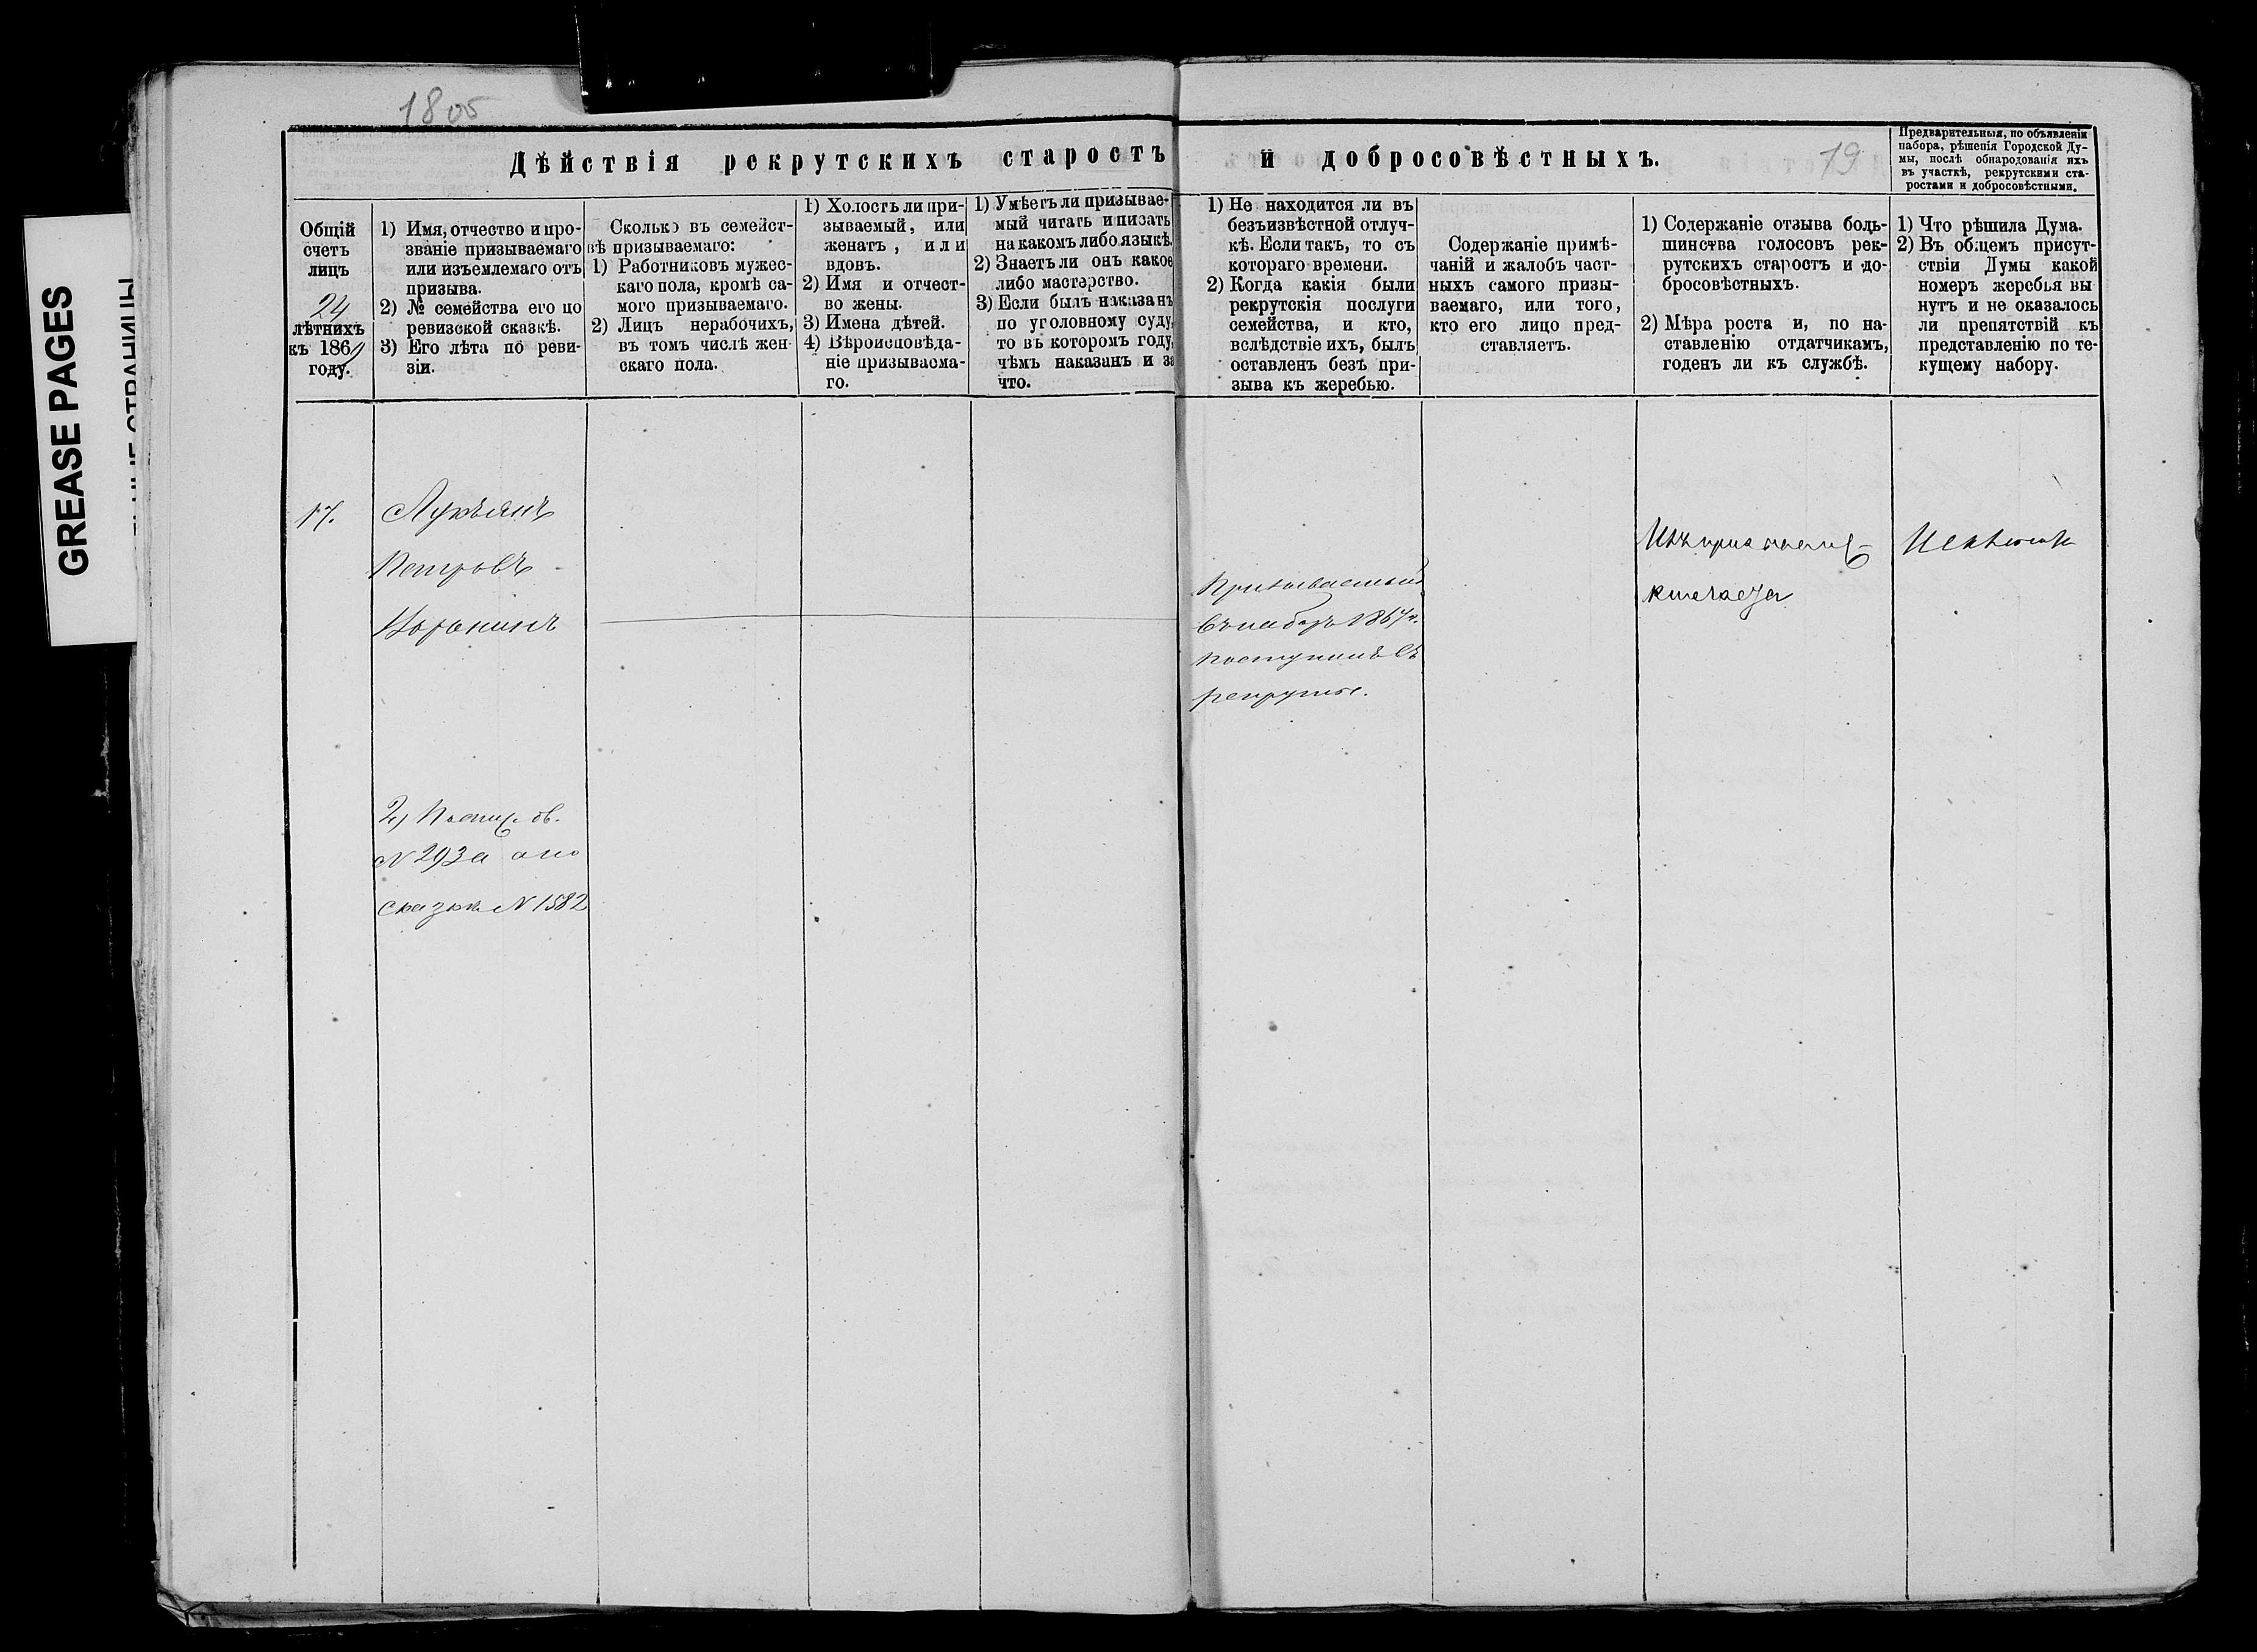 GREASE PAGES
1805
Дѣйствія рекрутскихъ старостъ и добросовѣстныхъ.
19
Предварительныя, по объявленіи
набора, рѣшенія Городской Ду-
мы, послѣ обнародованія ихъ
въ участкѣ, рекрутскими ста-
ростами и добросовѣстными.
Общій
счетъ
лицъ
24
лѣтнихъ
къ 186
году.
1) Имя, отчество и про-
званіе призываемаго
или изъемлемаго отъ
призыва.
2) № семейства его по
ревизской сказкѣ.
3) Его лѣта по реви-
зіи.
Сколько въ семейст-
вѣ призываемаго:
1) Работниковъ мужес-
каго пола, кромѣ са-
мого призываемаго.
2) Лицъ нерабочихъ,
въ томъ числѣ жен-
скаго пола.
1) Холостъ ли при-
зываемый, или
женатъ, или
вдовъ.
2) Имя и отчест-
во жены.
3) Имена дѣтей.
4) Вѣроисповѣда-
ніе призываема-
го.
1) Умѣетъ ли призывае-
мый читать и писать
на какомъ либо языкѣ.
2) Знаетъ ли онъ какое
либо мастерство.
3) Если былъ наказанъ
по уголовному суду,
то въ которомъ году,
чѣмъ наказанъ и за
что.
1) Не находится ли въ
безъизвѣстной отлуч-
кѣ. Если такъ, то съ
котораго времени.
2) Когда какія были
рекрутскія послуги
семейства, и кто,
вслѣдствіе ихъ, былъ
оставленъ безъ при-
зыва къ жеребью.
Содержаніе примѣ-
чаній и жалобъ част-
ныхъ самого призы-
ваемаго, или того,
кто его лицо пред-
ставляетъ.
1) Содержаніе отзыва боль-
шинства голосовъ рек-
рутскихъ старостъ и до-
бросовѣстныхъ.
2) Мѣра роста и, по на-
ставленію отдатчикамъ,
годенъ ли къ службѣ.
1) Что рѣшила Дума.
2) Въ общемъ присут-
ствіи Думы какой
номеръ жеребья вы
нутъ и не оказалось
ли препятствій къ
представленію по те-
кущему набору.
17.
Лукьянъ
Петровъ
Воронинъ
2)
№ 293 а по
сказкѣ № 1582
Призываемый
въ наборъ 1867 г.
поступилъ въ
рекруты.
Изъ призыва